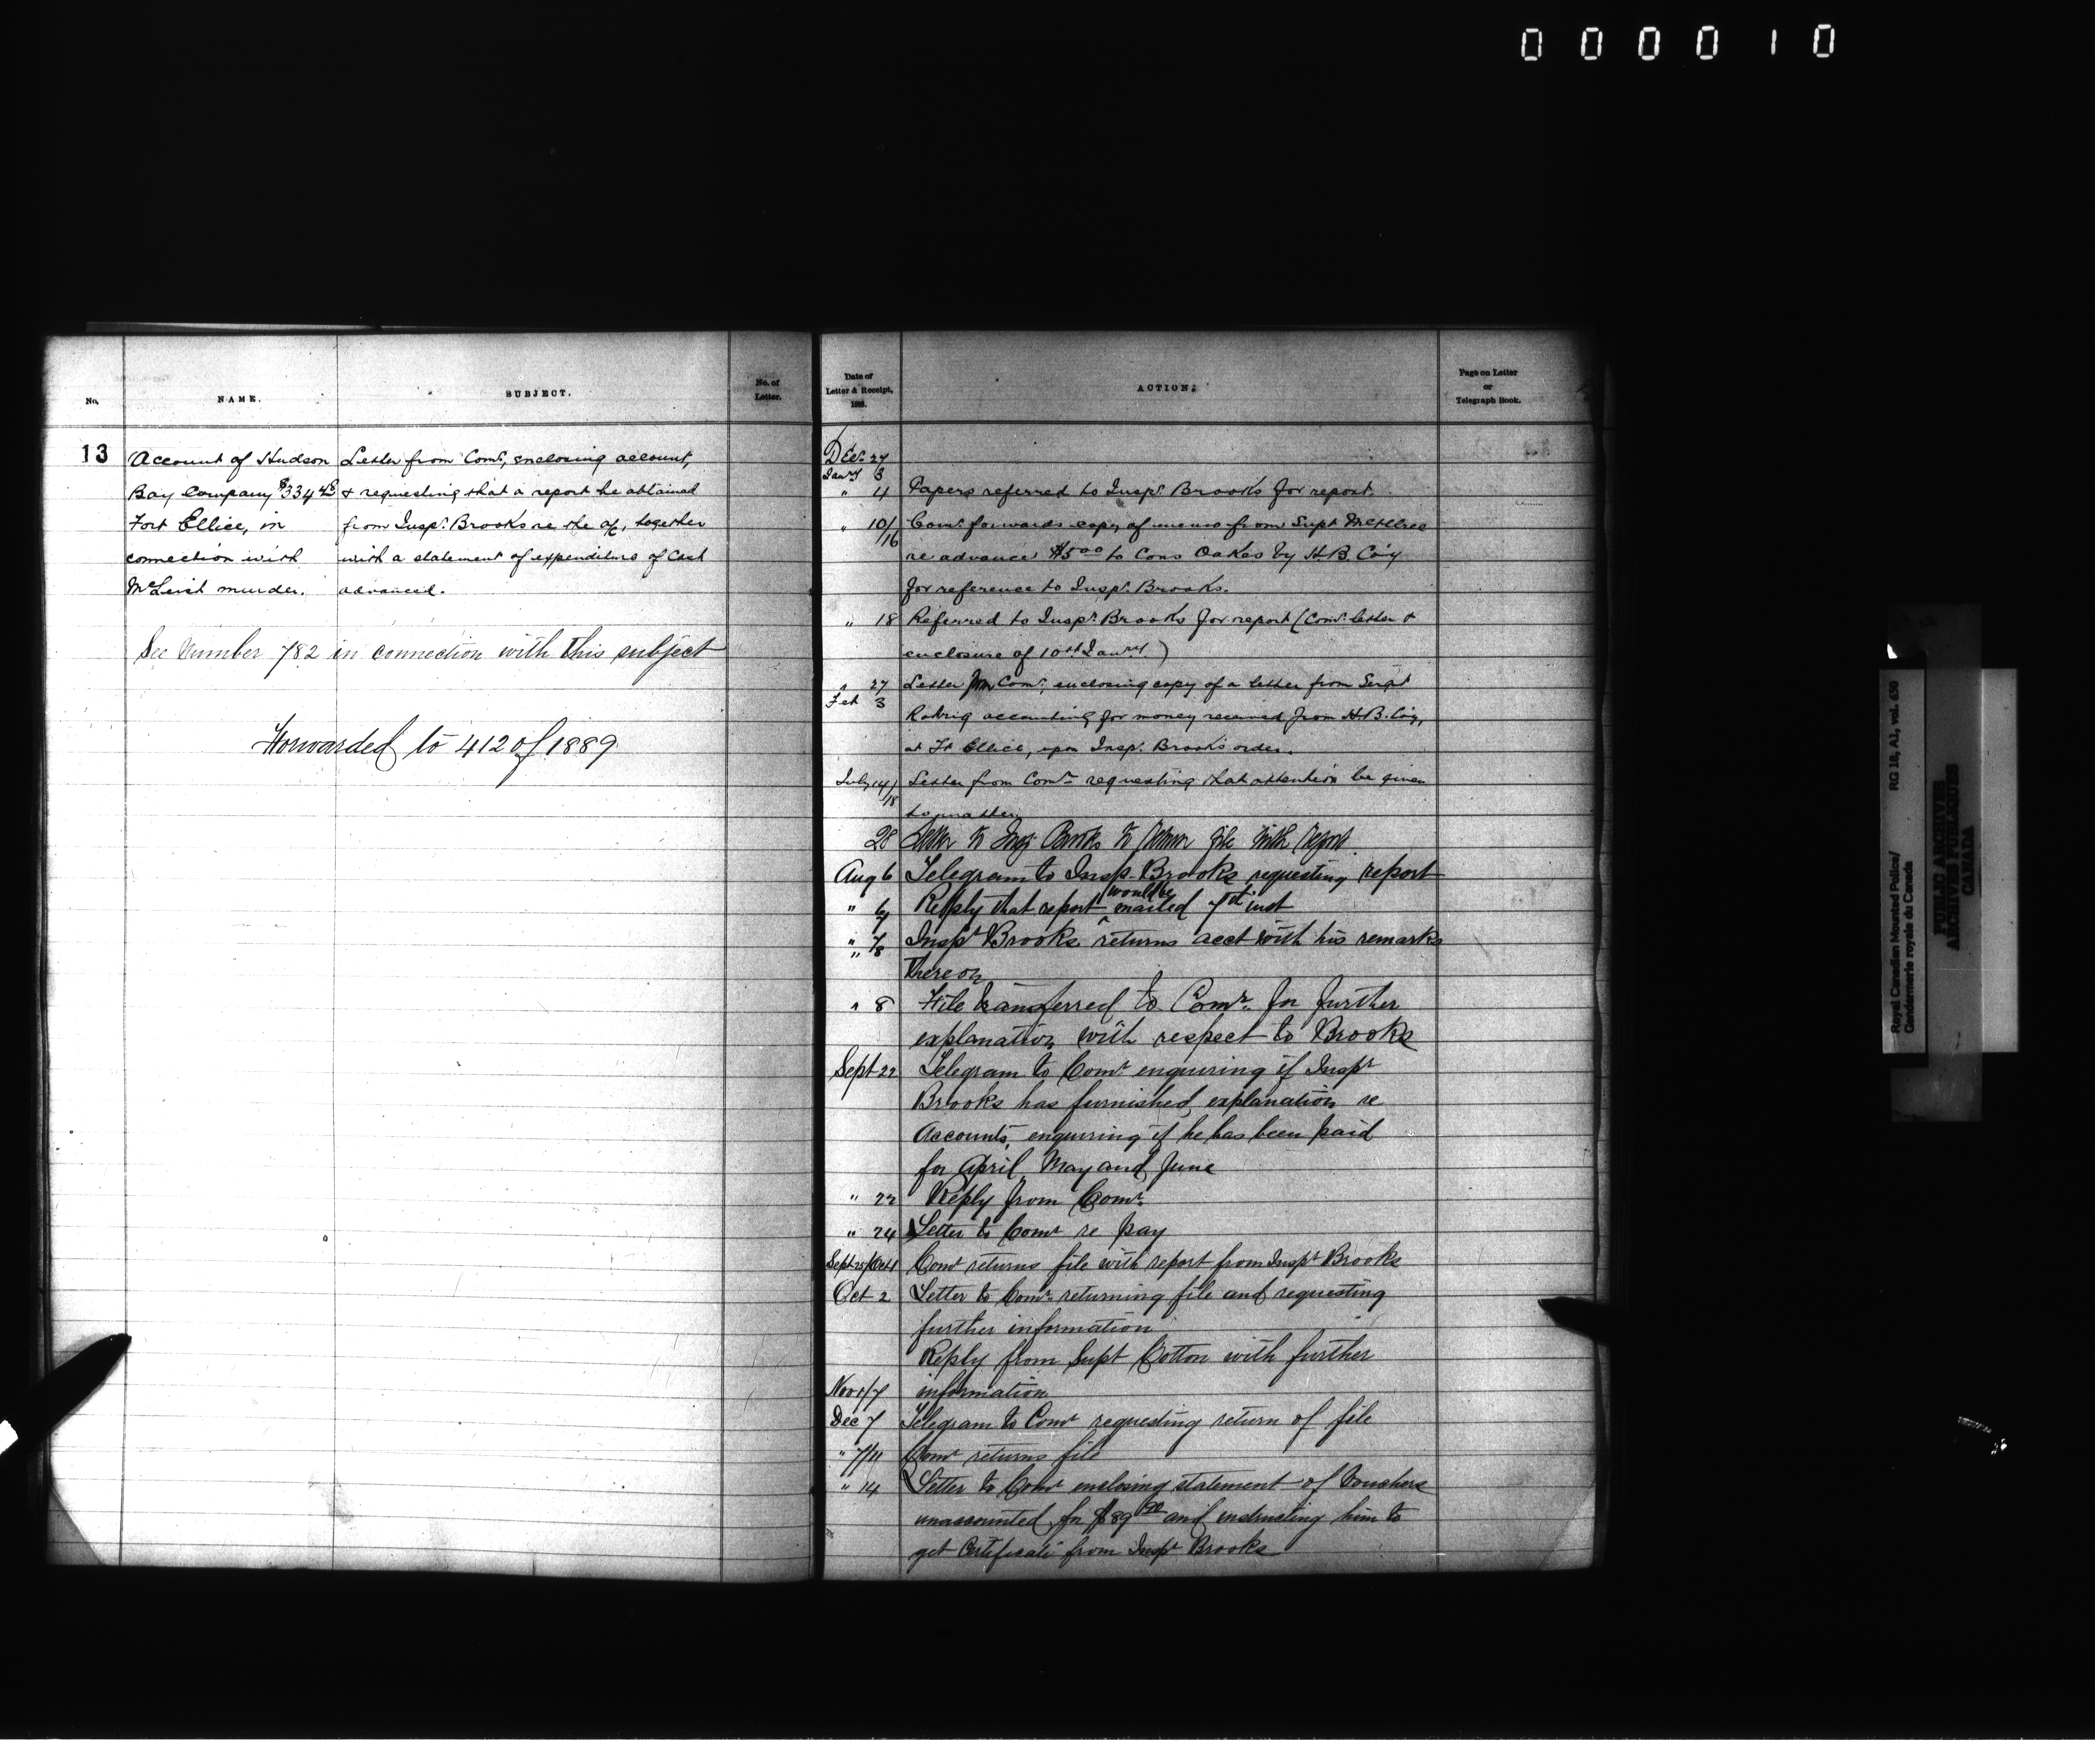 000010
No.
NAME.
SUBJECT.
No. of
Letter.
13
Account of Hudson
Bay Company $334
Fort Ellice, in
connection with
McLeish murder.
Letter from Comr, enclosing account,
& requesting that a report be obtained
from Inspr. Brooks re the a/c, together
with a statement of expenditure of Cash
advanced.
See Number 782 in connection with this subject
Forwarded to 412 of 1889
Date of
Letter & Receipt,
1888.
ACTION.
Page on Letter
or
Telegraph Book.
Decr 27
Jany 3
" 4 Papers referred to Inspr Brooks for report.
" 10/16 Comr forwards copy of memo from Supt McIllree
re advance $5.00 to Cons Oakes by H.B. Coy
for reference to Inspr. Brooks.
" 18 Referred to Inspr. Brooks for report (Comr letter &
enclosure of 10th Jany.)
" 27 Letter from Comr, enclosing copy of a letter from Sergt
Feb 3
accounting for money received from H.B. Coy,
at Ft Ellice, upon Inspr. Brooks order.
July 14/18 Letter from Comr requesting that attention be given
to matter
28 Letter to Insp Brooks to return file with report
Aug 6 Telegram to Insp. Brooks requesting report
" 6/7 Reply that report would be mailed 7th inst
" 7/8 Inspt Brooks returns acct with his remarks
"
thereon
" 8 File transferred to Comr. for further
explanation with respect to Brooks
Sept 22 Telegram to Comr enquiring if Inspr
Brooks has furnished explanation re
Accounts, enquiring if he has been paid
for April, May and June
" 22 Reply from Comr.
" 24 Letter to Comr re pay
Sept 25/Oct 1 Comr returns file with report from Inspr Brooks
Oct 2 Letter to Comr. returning file and requesting
further information
Reply from Supt Cotton with further
Nov 1/7 information
Dec 7 Telegram to Comr requesting return of file
" 7/11 Comr returns file
" 14 Letter to Comr enclosing statement of Vouchers
unaccounted for $89 and instructing him to
get Certificate from Inspr Brooks
Royal Canadian Mounted Police/
Gendarmerie royale du Canada
RG 18, A1, vol. 650
PUBLIC ARCHIVES
ARCHIVES PUBLIQUES
CANADA